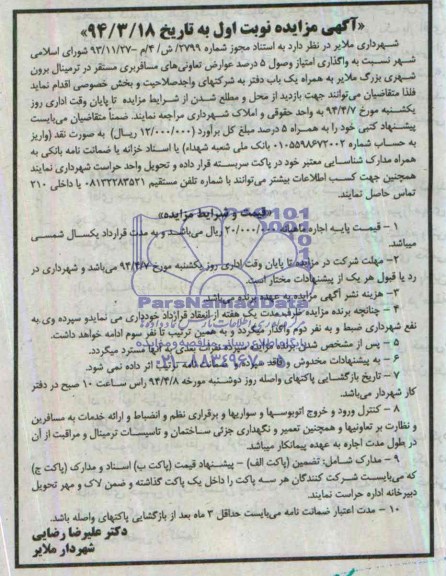 «آگهی مزایده نوبت اول به تاریخ ۹۴/۳/۱۸»
شهرداری ملایر در نظر دارد به استناد مجوز شماره ۲۷۹۹/ش/۴/م-۹۳/۱۱/۲۷ شورای اسلامی
شهر نسبت به واگذاری امتیاز وصول ۵ درصد عوارض تعاونی‌های مسافربری مستقر در ترمینال برون
شهری بزرگ ملایر به همراه یک باب دفتر به شرکتهای واجدصلاحیت و بخش خصوصی اقدام نماید
فلذا متقاضیان می‌توانند جهت بازدید از محل و مطلع شدن از شرایط مزایده تا پایان وقت اداری روز
یکشنبه مورخ ۹۴/۴/۷ به واحد حقوقی و املاک شهرداری مراجعه نمایند. ضمناً متقاضیان می‌بایست
پیشنهاد کتبی خود را به همراه ۵ درصد مبلغ کل برآورد (۱۲/۰۰۰/۰۰۰ ریال) به صورت نقد (واریز
به حساب شماره ۰۱۰۵۵۹۸۶۷۲۰۰۲ بانک ملی شعبه شهداء) یا اسناد خزانه یا ضمانت نامه بانکی به
همراه مدارک شناسایی معتبر خود در پاکت سربسته قرار داده و تحویل واحد حراست شهرداری نمایند
همچنین جهت کسب اطلاعات بیشتر می‌توانند با شماره تلفن مستقیم ۰۸۱۳۲۲۸۳۵۲۱ یا داخلی ۲۱۰
تماس حاصل نمایند.
«قیمت و شرایط مزایده»
۱ - قیمت پایه اجاره ماهیانه ۲۰/۰۰۰/۰۰۰ ریال می‌باشد و به مدت قرارداد یکسال شمسی
میباشد.
۲- مهلت شرکت در مزایده تا پایان وقت اداری روز یکشنبه مورخ ۹۴/۴/۷ می‌باشد و شهرداری در
رد یا قبول هر یک از پیشنهادات مختار است.
۳ - هزینه نشر آگهی مزایده به عهده برنده می‌باشد.
۴ - چنانچه برنده مزایده ظرف مدت یک هفته از انعقاد قرارداد خودداری می نماید و سپرده وی به
نفع شهرداری ضبط و به نفر دوم واگذار میگردد و به همین ترتیب تا نفر سوم ادامه خواهد داشت.
۵ - پس از مشخص شدن برنده مزایده سپرده نفرات بعدی به آنها مسترد میگردد.
۶ - به پیشنهادات مخدوش و فاقد سپرده و ضمانت نامه ثابت اثر داده نمی شود.
۷ - تاریخ بازگشایی پاکتهای واصله روز دوشنبه مورخه ۹۴/۴/۸ راس ساعت ۱۰ صبح در دفتر
کار شهردار می‌باشد.
۸ - کنترل ورود و خروج اتوبوسها و سواریها و برقراری نظم و انضباط و ارائه خدمات به مسافرین
و نظارت بر تعاونیها و همچنین تعمیر و نگهداری جزئی ساختمان و تاسیسات ترمینال و مراقبت از آن
در طول مدت اجاره به عهده پیمانکار میباشد.
۹ - مدارک شامل: تضمین (پاکت الف) - پیشنهاد قیمت (پاکت ب) اسناد و مدارک (پاکت ج)
که می‌بایست شرکت کنندگان هر سه پاکت را داخل یک پاکت گذاشته و ضمن لاک و مهر تحویل
دبیرخانه اداره حراست نمایند.
۱۰ - مدت اعتبار ضمانت نامه می‌بایست حداقل ۳ ماه بعد از بازگشایی پاکتهای واصله باشد.
دکتر علیرضا رضایی
شهردار ملایر
ParsNamadData